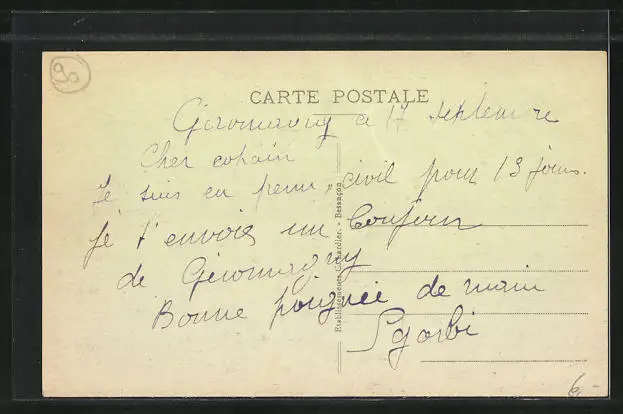 90
CARTE POSTALE
Giromagny le 17 septembre
Cher copain
Je suis en perm civil pour 13 jours.
Je t'envois un bonjour
de Giromagny
Bonne poignée de main
Sgorbi
Etablissements C. Lardier. - Besançon
6.-